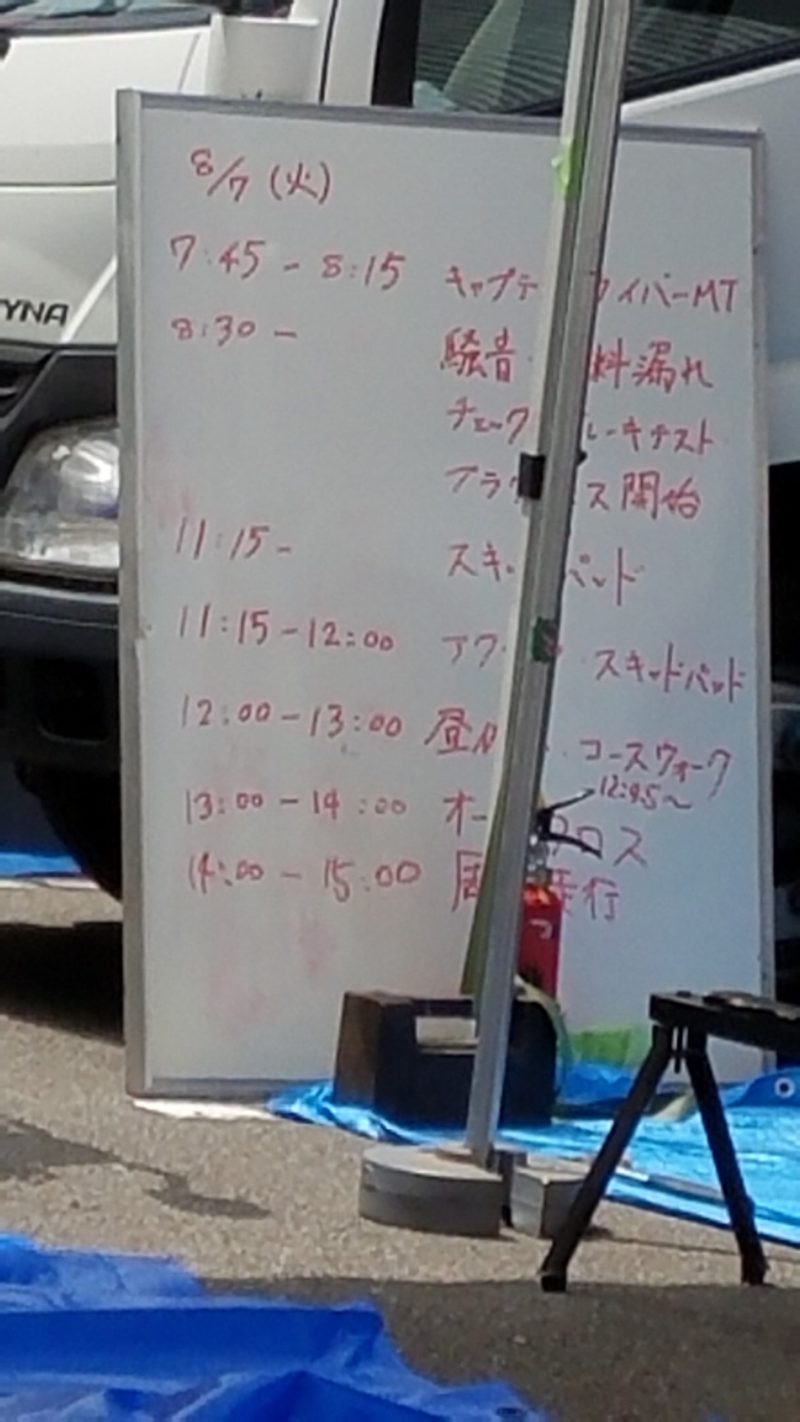 YNA
8/7 (火)
7:45 - 8:15 キャプテ イバーMT
8:30 - 騒音 料漏れ
チェック ーキテスト
ス開始
11:15 - スキ パッド
11:15 - 12:00 スキッドパッド
12:00 - 13:00 昼 コースウォーク
12:45~
13:00 - 14:00 オー クロス
14:00 - 15:00 周 走行